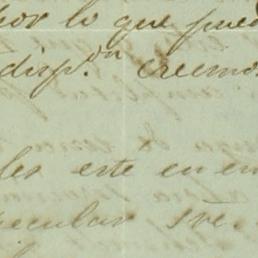 por lo que pued
disp.on creemo
les este en en
pecular sre.